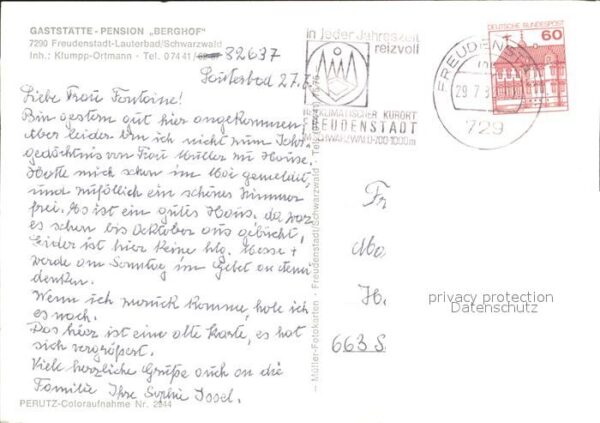 GASTSTÄTTE - PENSION „BERGHOF"
7290 Freudenstadt-Lauterbad/Schwarzwald
Inh.: Klumpp-Ortmann - Tel. 07441/ 82637
Lauterbad 27.7.
Liebe Frau Fontaine!
Bin gestern gut hier angekommen,
Aber leider bin ich nicht zum Jahr-
gedächtnis von Frau Müller zu Hause.
Hatte mich schon im Mai gemeldet,
und zufällich ein schönes Zimmer
frei. Es ist ein gutes Haus, da war
es schon bis Oktober aus gebucht,
Leider ist hier keine hlg. Messe +
werde am Sonntag im Gebet an denn
denken.
Wenn ich zurück komme, hole ich
es nach.
Das hier ist eine alte Karte, es hat
sich vergrößert.
Viele herzliche Grüße auch an die
Familie Ihre Sophie Josel.
PERUTZ-Coloraufnahme Nr. 2944
— Müller-Fotokarten - Freudenstadt/Schwarzwald - Tel.
in jeder Jahreszeit
reizvoll
HEILKLIMATISCHER KURORT
FREUDENSTADT
SCHWARZWALD·700-1000m
FREUDENSTADT
29.7.8
729
DEUTSCHE BUNDESPOST
60
Fr
Ma
H
663 S
privacy protection
Datenschutz